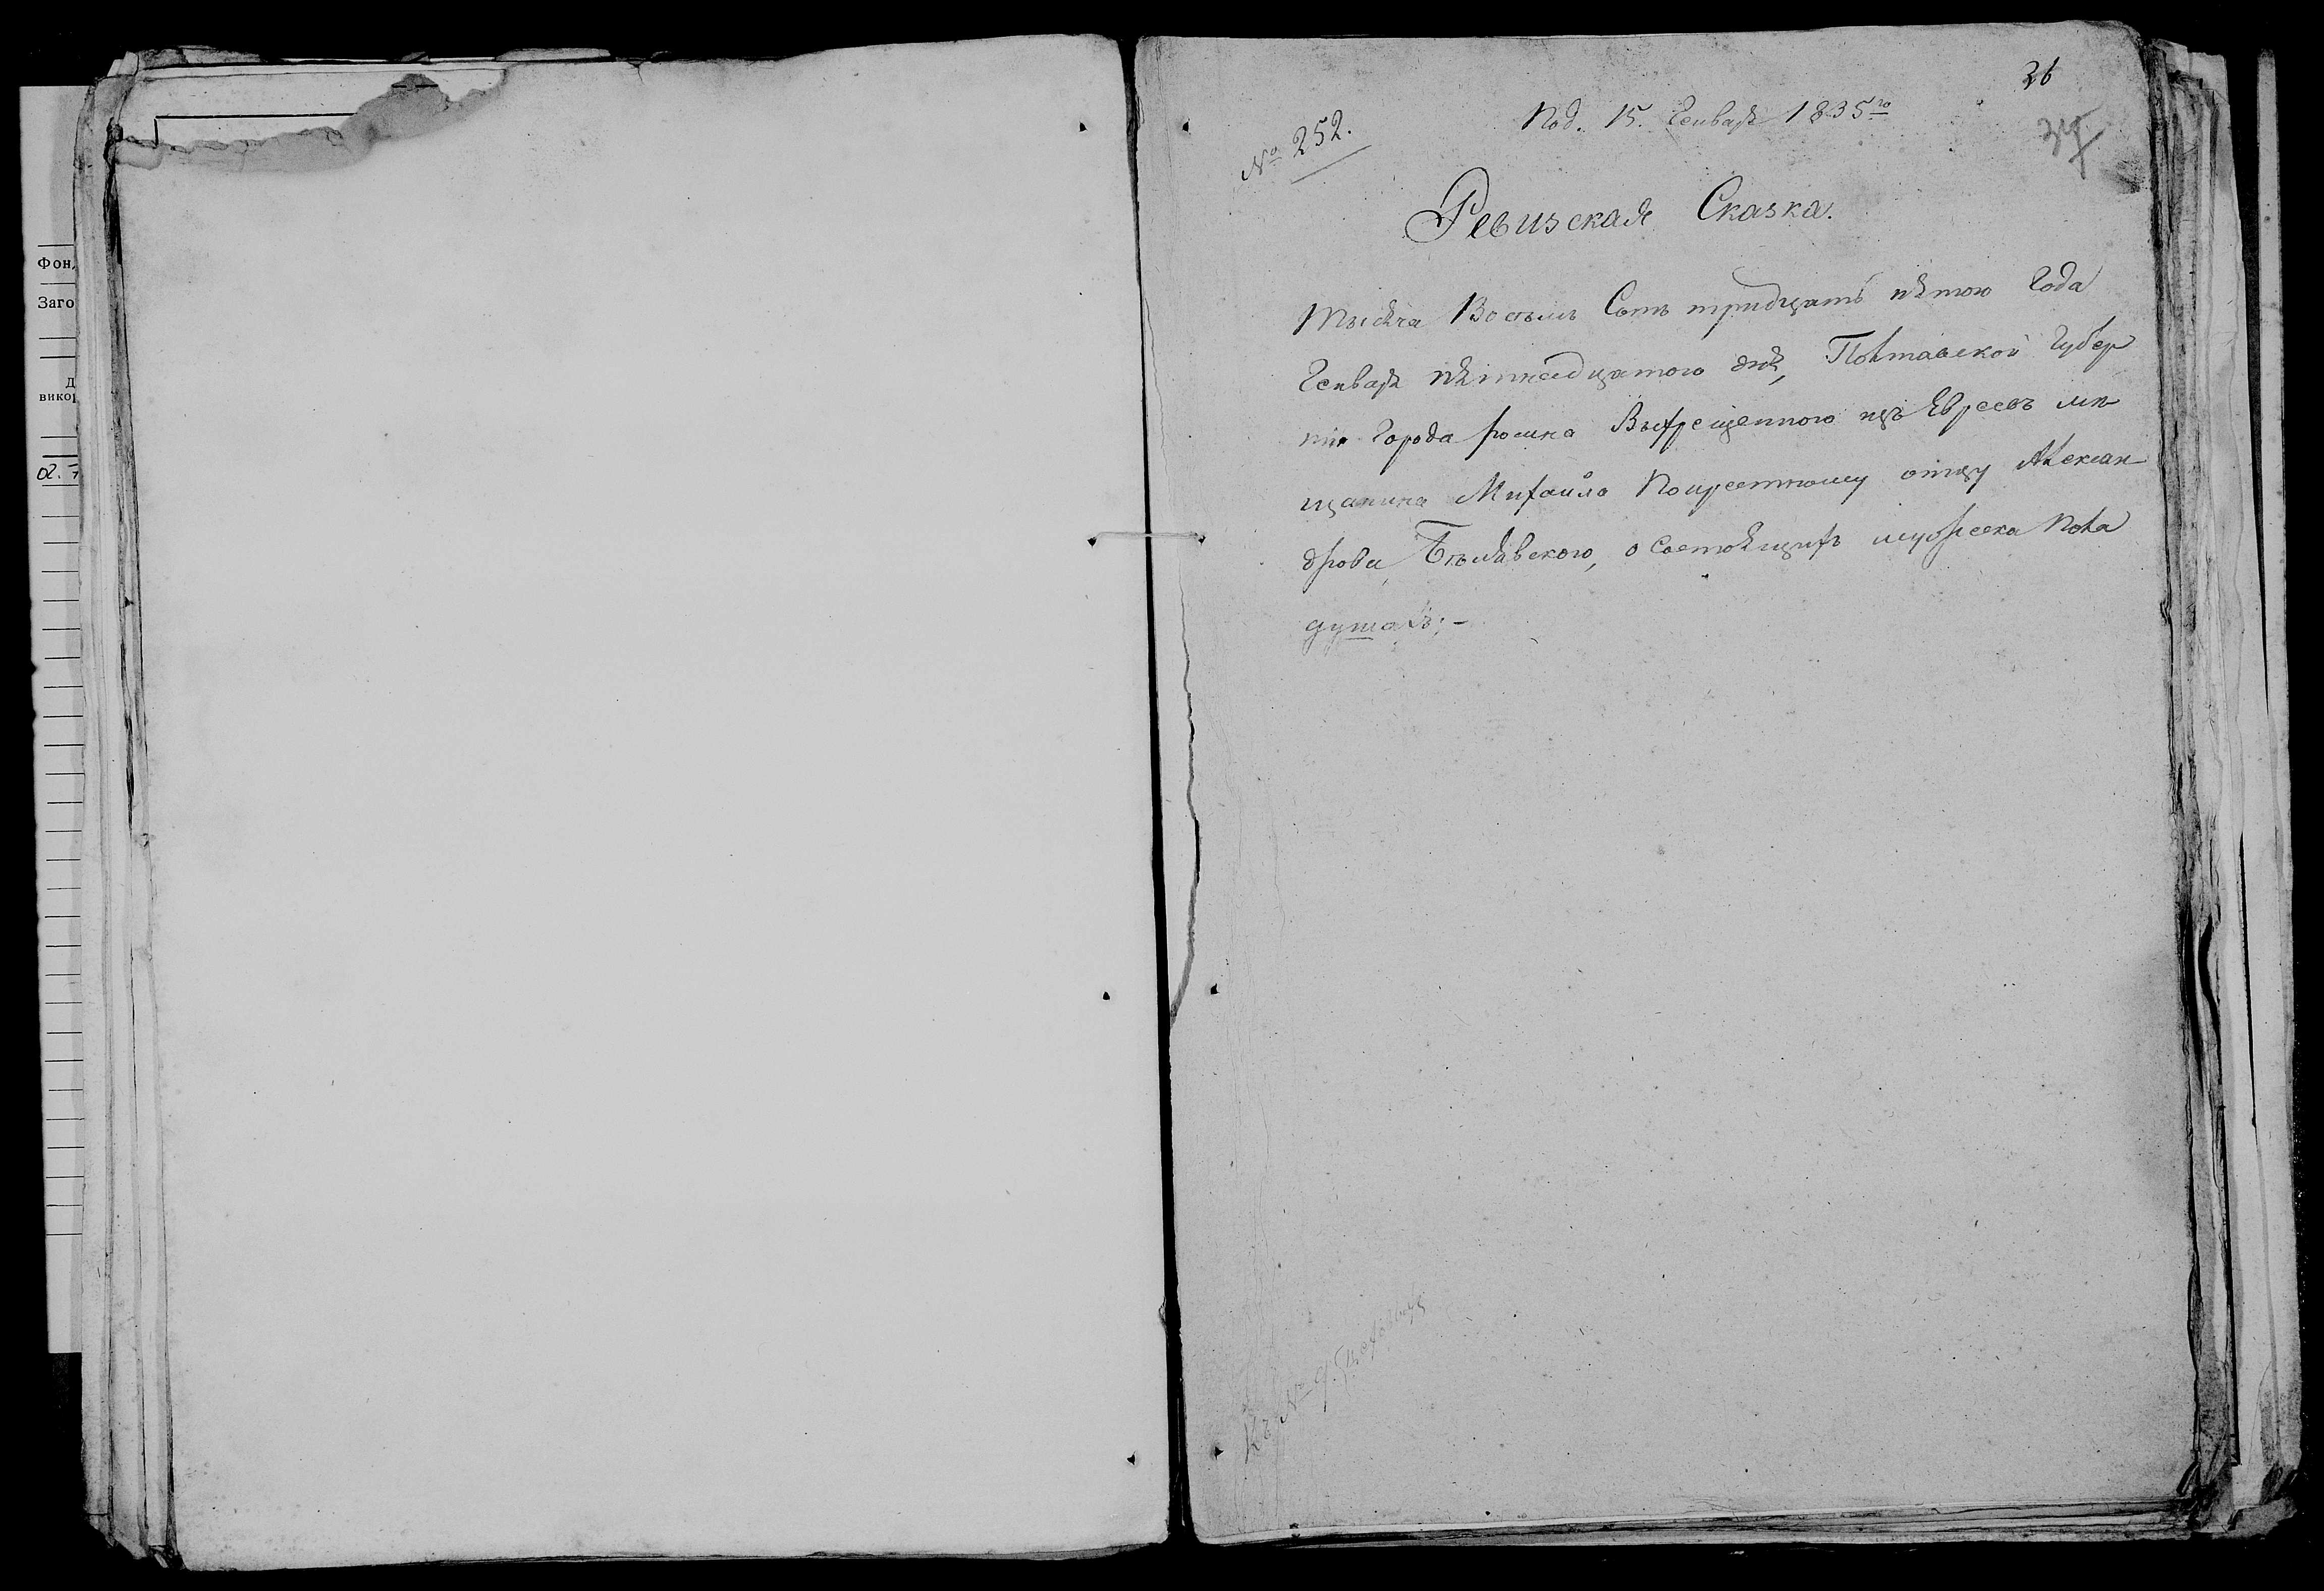 Фон
Заго
Д
викор
02.7
26
37
№ 252.
Под. 15. Генваря 1835го
Ревизская Сказка.
Тысяча Восемь Сотъ тридцать пятого Года
Генваря пятнадцатого дня, Полтавской Губер
ніи Города ромна Выкрещенного изъ Евреевъ мѣ
щанина Михаила По крестному отцу Алексан
дрова Бѣлявского, о Состоящихъ мужеска пола
душахъ;-
Къ № 9.